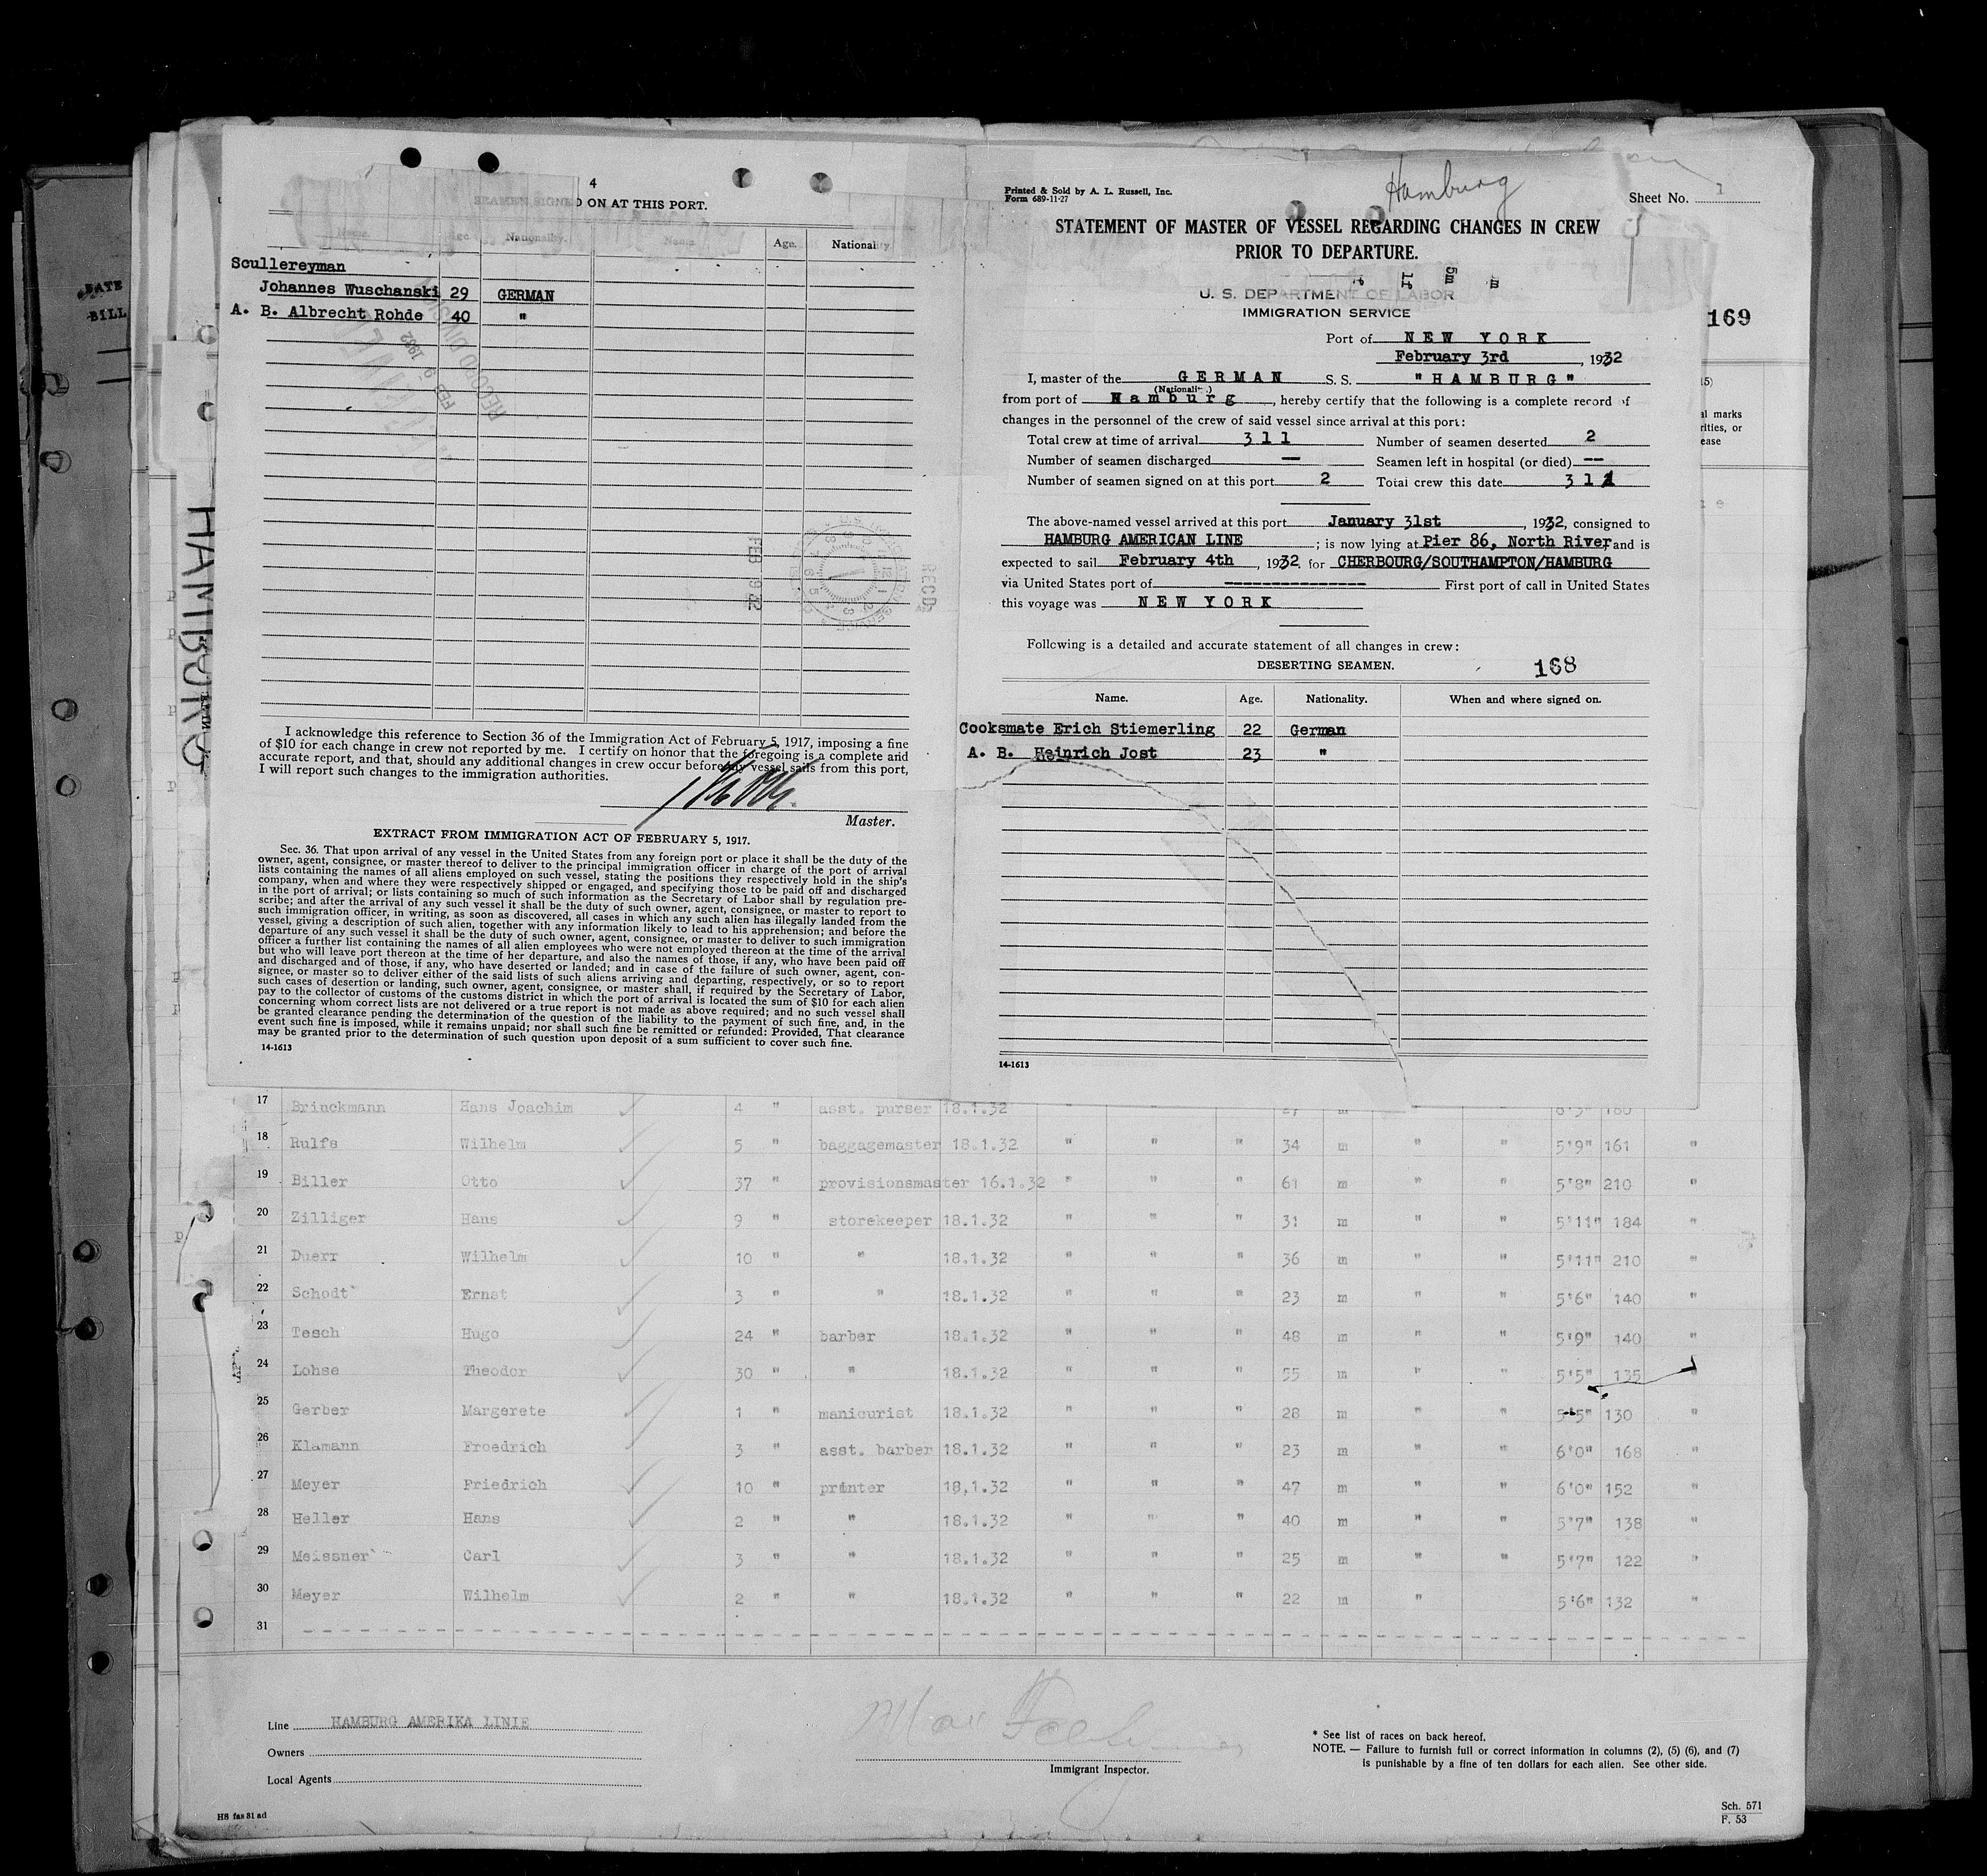 4
SEAMEN SIGNED ON AT THIS PORT.
Name. Age. Nationality. Name. Age. Nationality
Scullereyman
Johannes Wuschanski 29 GERMAN
A. B. Albrecht Rohde 40 "
RECORD DIVISION
FEB 9, 1932
FEB 9 32
RECD
I acknowledge this reference to Section 36 of the Immigration Act of February 5, 1917, imposing a fine
of $10 for each change in crew not reported by me. I certify on honor that the foregoing is a complete and
accurate report, and that, should any additional changes in crew occur before my vessel sails from this port,
I will report such changes to the immigration authorities.
Master.
EXTRACT FROM IMMIGRATION ACT OF FEBRUARY 5, 1917.
Sec. 36. That upon arrival of any vessel in the United States from any foreign port or place it shall be the duty of the
owner, agent, consignee, or master thereof to deliver to the principal immigration officer in charge of the port of arrival
lists containing the names of all aliens employed on such vessel, stating the positions they respectively hold in the ship's
company, when and where they were respectively shipped or engaged, and specifying those to be paid off and discharged
in the port of arrival; or lists containing so much of such information as the Secretary of Labor shall by regulation pre-
scribe; and after the arrival of any such vessel it shall be the duty of such owner, agent, consignee, or master to report to
such immigration officer, in writing, as soon as discovered, all cases in which any such alien has illegally landed from the
vessel, giving a description of such alien, together with any information likely to lead to his apprehension; and before the
departure of any such vessel it shall be the duty of such owner, agent, consignee, or master to deliver to such immigration
officer a further list containing the names of all alien employees who were not employed thereon at the time of the arrival
but who will leave port thereon at the time of her departure, and also the names of those, if any, who have been paid off
and discharged and of those, if any, who have deserted or landed; and in case of the failure of such owner, agent, con-
signee, or master so to deliver either of the said lists of such aliens arriving and departing, respectively, or so to report
such cases of desertion or landing, such owner, agent, consignee, or master shall, if required by the Secretary of Labor,
pay to the collector of customs of the customs district in which the port of arrival is located the sum of $10 for each alien
concerning whom correct lists are not delivered or a true report is not made as above required; and no such vessel shall
be granted clearance pending the determination of the question of the liability to the payment of such fine, and, in the
event such fine is imposed, while it remains unpaid; nor shall such fine be remitted or refunded: Provided, That clearance
may be granted prior to the determination of such question upon deposit of a sum sufficient to cover such fine.
14-1613
Printed & Sold by A. L. Russell, Inc.
Form 689-11-27
Hamburg
Sheet No. 1
STATEMENT OF MASTER OF VESSEL REGARDING CHANGES IN CREW
PRIOR TO DEPARTURE.
U. S. DEPARTMENT OF LABOR
IMMIGRATION SERVICE
Port of NEW YORK
February 3rd, 1932
I, master of the GERMAN S. S. "HAMBURG"
(Nationality)
from port of Hamburg, hereby certify that the following is a complete record of
changes in the personnel of the crew of said vessel since arrival at this port:
Total crew at time of arrival 311 Number of seamen deserted 2
Number of seamen discharged — Seamen left in hospital (or died) --
Number of seamen signed on at this port 2 Total crew this date 311
The above-named vessel arrived at this port January 31st, 1932, consigned to
HAMBURG AMERICAN LINE; is now lying at Pier 86, North River, and is
expected to sail February 4th, 1932, for CHERBOURG/SOUTHAMPTON/HAMBURG
via United States port of --------------- First port of call in United States
this voyage was NEW YORK
Following is a detailed and accurate statement of all changes in crew:
DESERTING SEAMEN. 168
Name. Age. Nationality. When and where signed on.
Cooksmate Erich Stiemerling 22 German
A. B. Heinrich Jost 23 "
14-1613
169
al marks
rities, or
ease
DATE
BILL
HAMBURG
17 Brinckmann Hans Joachim 4 " asst. purser 18.1.32 " " " 27 m " " 6'3" 180
18 Rulfs Wilhelm 5 " baggagemaster 18.1.32 " " " 34 m " " 5'9" 161 "
19 Biller Otto 37 " provisionsmaster 16.1.32 " " " 61 m " " 5'8" 210 "
20 Zilliger Hans 9 " storekeeper 18.1.32 " " " 31 m " " 5'11" 184 "
21 Duerr Wilhelm 10 " " 18.1.32 " " " 36 m " " 5'11" 210 "
22 Schodt Ernst 3 " " 18.1.32 " " " 23 m " " 5'6" 140 "
23 Tesch Hugo 24 " barber 18.1.32 " " " 48 m " " 5'9" 140 "
24 Lohse Theodor 30 " " 18.1.32 " " " 55 m " " 5'5" 135 "
25 Gerber Margerete 1 " manicurist 18.1.32 " " " 28 m " " 5'5" 130 "
26 Klamann Froedrich 3 " asst. barber 18.1.32 " " " 23 m " " 6'0" 168 "
27 Meyer Friedrich 10 " printer 18.1.32 " " " 47 m " " 6'0" 152 "
28 Heller Hans 2 " " 18.1.32 " " " 40 m " " 5'7" 138 "
29 Meissner Carl 3 " " 18.1.32 " " " 25 m " " 5'7" 122 "
30 Meyer Wilhelm 2 " " 18.1.32 " " " 22 m " 5'6" 132 "
31
Line HAMBURG AMERIKA LINIE
Owners
Local Agents
Immigrant Inspector.
* See list of races on back hereof.
NOTE. — Failure to furnish full or correct information in columns (2), (5) (6), and (7)
is punishable by a fine of ten dollars for each alien. See other side.
HS fas 81 ad
Sch. 571
F. 53